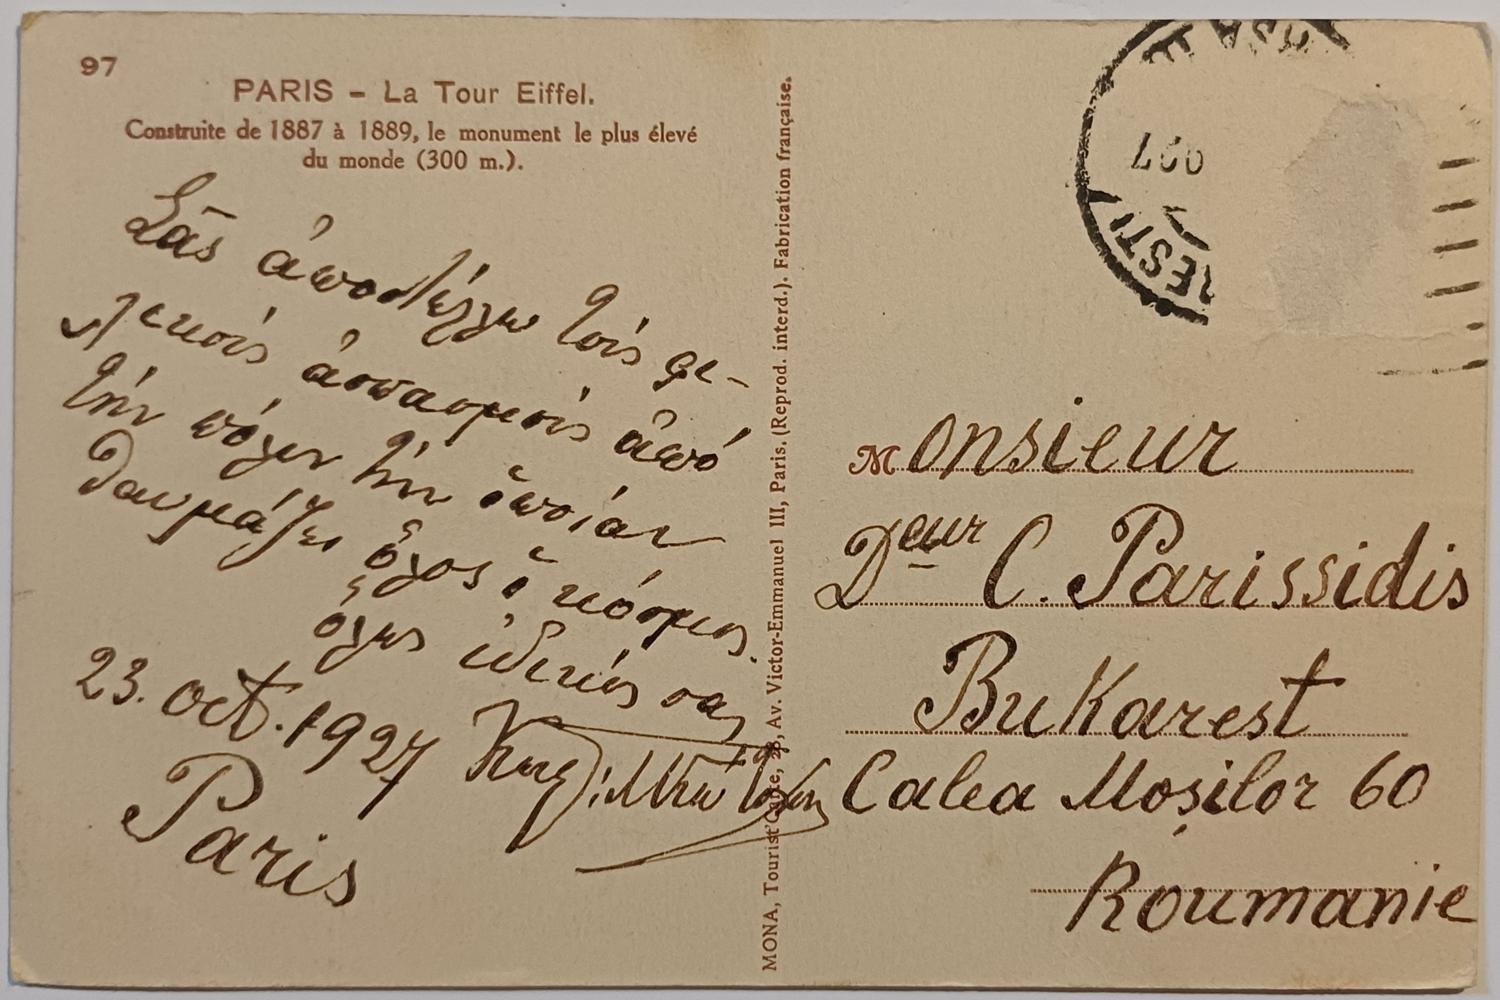 97
PARIS – La Tour Eiffel.
Construite de 1887 à 1889, le monument le plus élevé
du monde (300 m.).
Σᾶς ἀποστέλλω τοὺς φι-
λικούς ἀσπασμούς ἀπό
τὴν πόλιν τὴν ὁποίαν
θαυμάζει ὅλος ὁ κόσμος.
ὅλως ἰδικός σας
23. oct. 1927
Paris
MONA, Tourist'Carte, 28, Av. Victor-Emmanuel III, Paris. (Reprod. interd.). Fabrication française.
RESTI
Monsieur
Dʳ C. Parissidis
BuKarest
Calea Moșilor 60
Roumanie